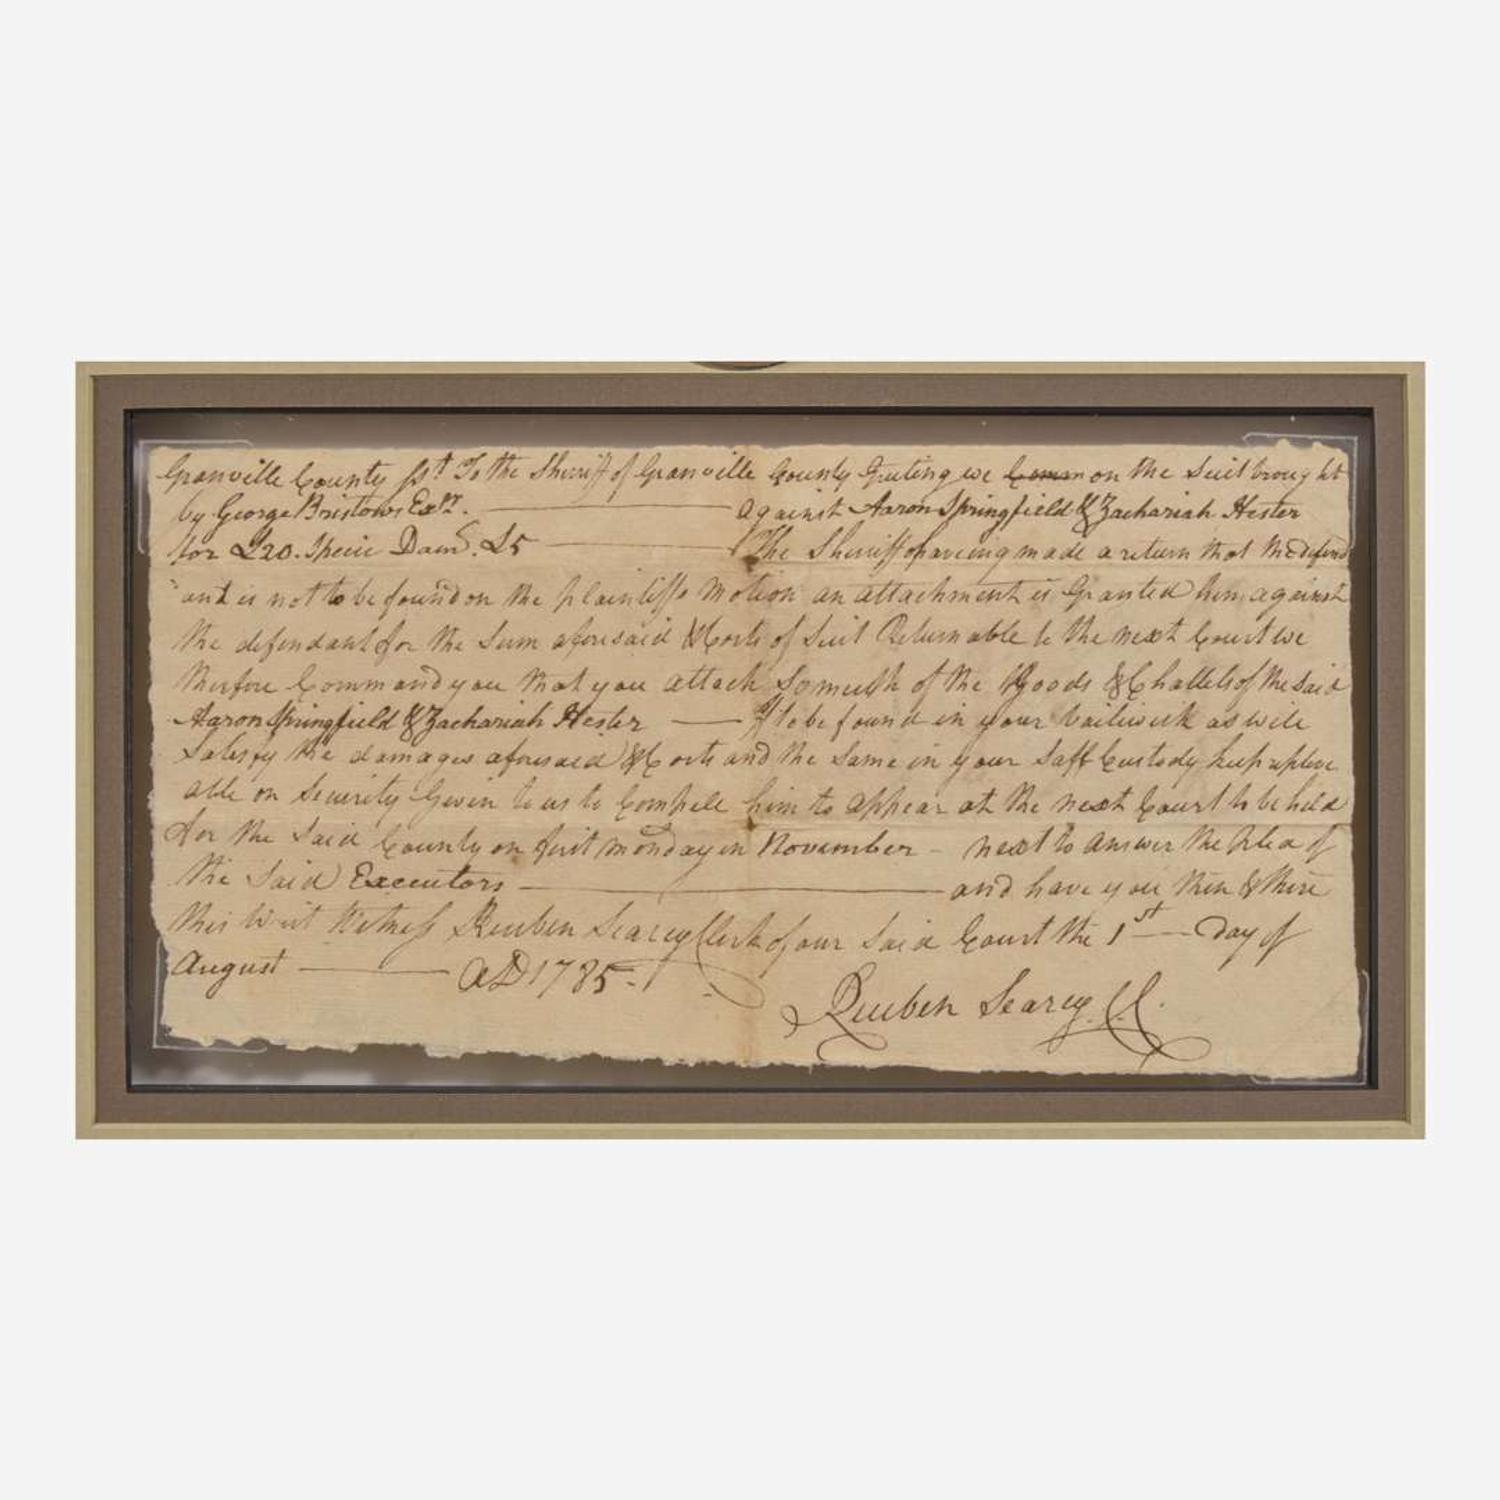 Granville County Sst To the Sheriff of Granville County Greeting we Comman on the Suit brought
by George Bristows Exrs. against Aaron Springfield & Zachariah Hester
for £20. Specie Dams. £5 The Sheriff haveing made a return that the defend
ant is not to be found on the plaintiffs Motion an attachment is Granted him against
the defendant for the Sum aforesaid & Costs of Suit Returnable to the next Court we
therfore Command you that you attach So much of the Goods & Chattels of the Said
Aaron Springfield & Zachariah Hester If to be found in your bailiwick as will
Satisfy the damages aforesaid & Costs and the Same in your Saff Custody keep replevi
able on Security Given to as to Compele him to appear at the next Court to be held
for the Said County on first monday in November - next to answer the plea of
the Said Executors and have you then & there
this Writ Witness Reuben Searcy Clerk of our Said Court the 1st day of
August AD 1785.
Reuben Searcy C.C.